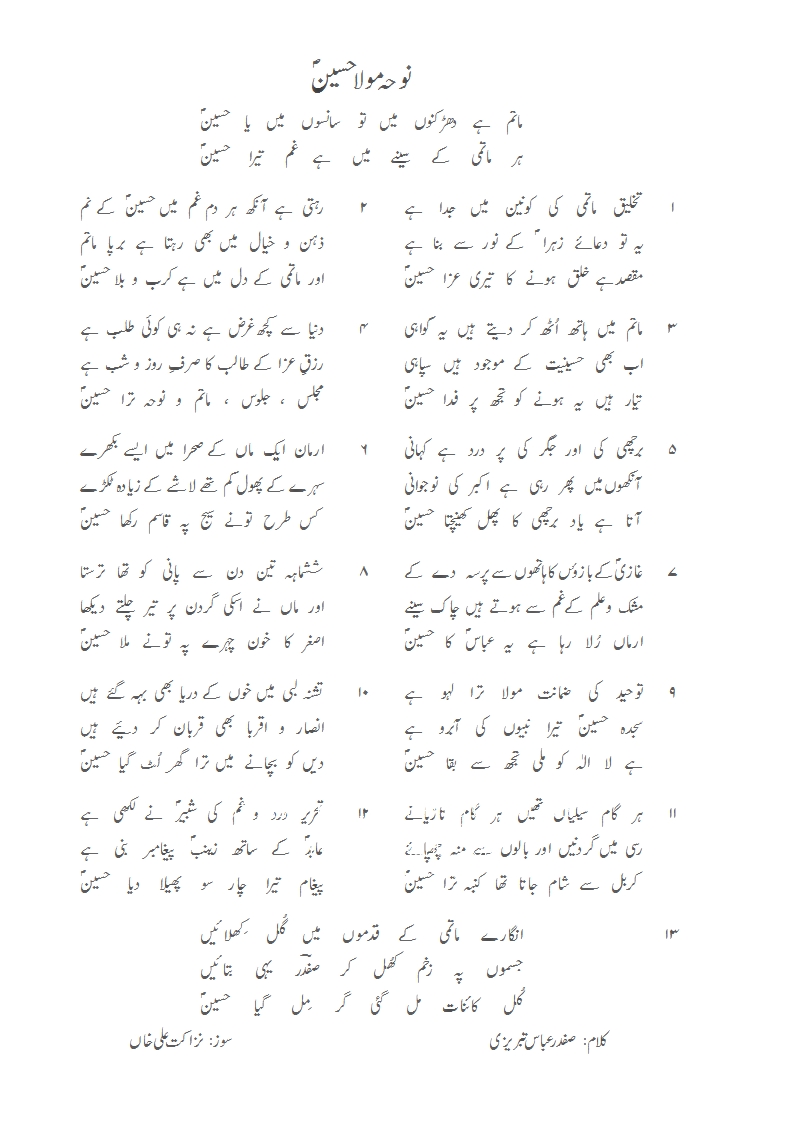 نوحہ مولا حسینؑ
ماتم ہے دھڑکنوں میں تو سانسوں میں یا حسینؑ
ہر ماتمی کے سینے میں ہے غم تیرا حسینؑ
۱ تخلیق ماتمی کی کونین میں جدا ہے
یہ تو دعائے زہراؑ کے نور سے بنا ہے
مقصد ہے خلق ہونے کا تیری عزا حسینؑ
۲ رہتی ہے آنکھ ہر دم غم میں حسینؑ کے نم
ذہن و خیال میں بھی رہتا ہے برپا ماتم
اور ماتمی کے دل میں ہے کرب و بلا حسینؑ
۳ ماتم میں ہاتھ اُٹھ کر دیتے ہیں یہ گواہی
اب بھی حسینیت کے موجود ہیں سپاہی
تیار ہیں یہ ہونے کو تجھ پر فدا حسینؑ
۴ دنیا سے کچھ غرض ہے نہ ہی کوئی طلب ہے
رزقِ عزا کے طالب کا صرفِ روز و شب ہے
مجلس ، جلوس ، ماتم و نوحہ ترا حسینؑ
۵ برچھی کی اور جگر کی پر درد ہے کہانی
آنکھوں میں پھر رہی ہے اکبر کی نوجوانی
آتا ہے یاد برچھی کا پھل کھینچتا حسینؑ
۶ ارمان ایک ماں کے صحرا میں ایسے بکھرے
سہرے کے پھول کم تھے لاشے کے زیادہ ٹکڑے
کس طرح تونے سیج پہ قاسم رکھا حسینؑ
۷ غازیؑ کے بازوٗں کا ہاتھوں سے پرسہ دے کے
مشک و علم کے غم سے ہوتے ہیں چاک سینے
ارماں رُلا رہا ہے یہ عباسؑ کا حسینؑ
۸ ششماہہ تین دن سے پانی کو تھا ترستا
اور ماں نے اسکی گردن پر تیر چلتے دیکھا
اصغر کا خون چہرے پہ تونے ملا حسینؑ
۹ توحید کی ضمانت مولا ترا لہو ہے
سجدہ حسینؑ تیرا نبیوں کی آبرو ہے
ہے لا الٰہ کو ملی تجھ سے بقا حسینؑ
۱۰ تشنہ لبی میں خوں کے دریا بھی بہہ گئے ہیں
انصار و اقربا بھی قربان کر دئیے ہیں
دیں کو بچانے میں ترا گھر لُٹ گیا حسینؑ
۱۱ ہر گام سیلیاں تھیں ہر گام تازیانے
رسی میں گردنیں اور بالوں سے منہ چھپائے
کربل سے شام جاتا تھا کنبہ ترا حسینؑ
۱۲ تحریر درد و غم کی شبیرؑ نے لکھی ہے
عابدؑ کے ساتھ زینبؑ پیغامبر بنی ہے
پیغام تیرا چار سو پھیلا دیا حسینؑ
۱۳ انگارے ماتمی کے قدموں میں گُل کِھلائیں
جسموں پہ زخم کھُل کر صفدرؔ یہی بتائیں
کُل کائنات مل گئی گر مِل گیا حسینؑ
کلام: صفدر عباس تبریزی
سوز: نزاکت علی خاں